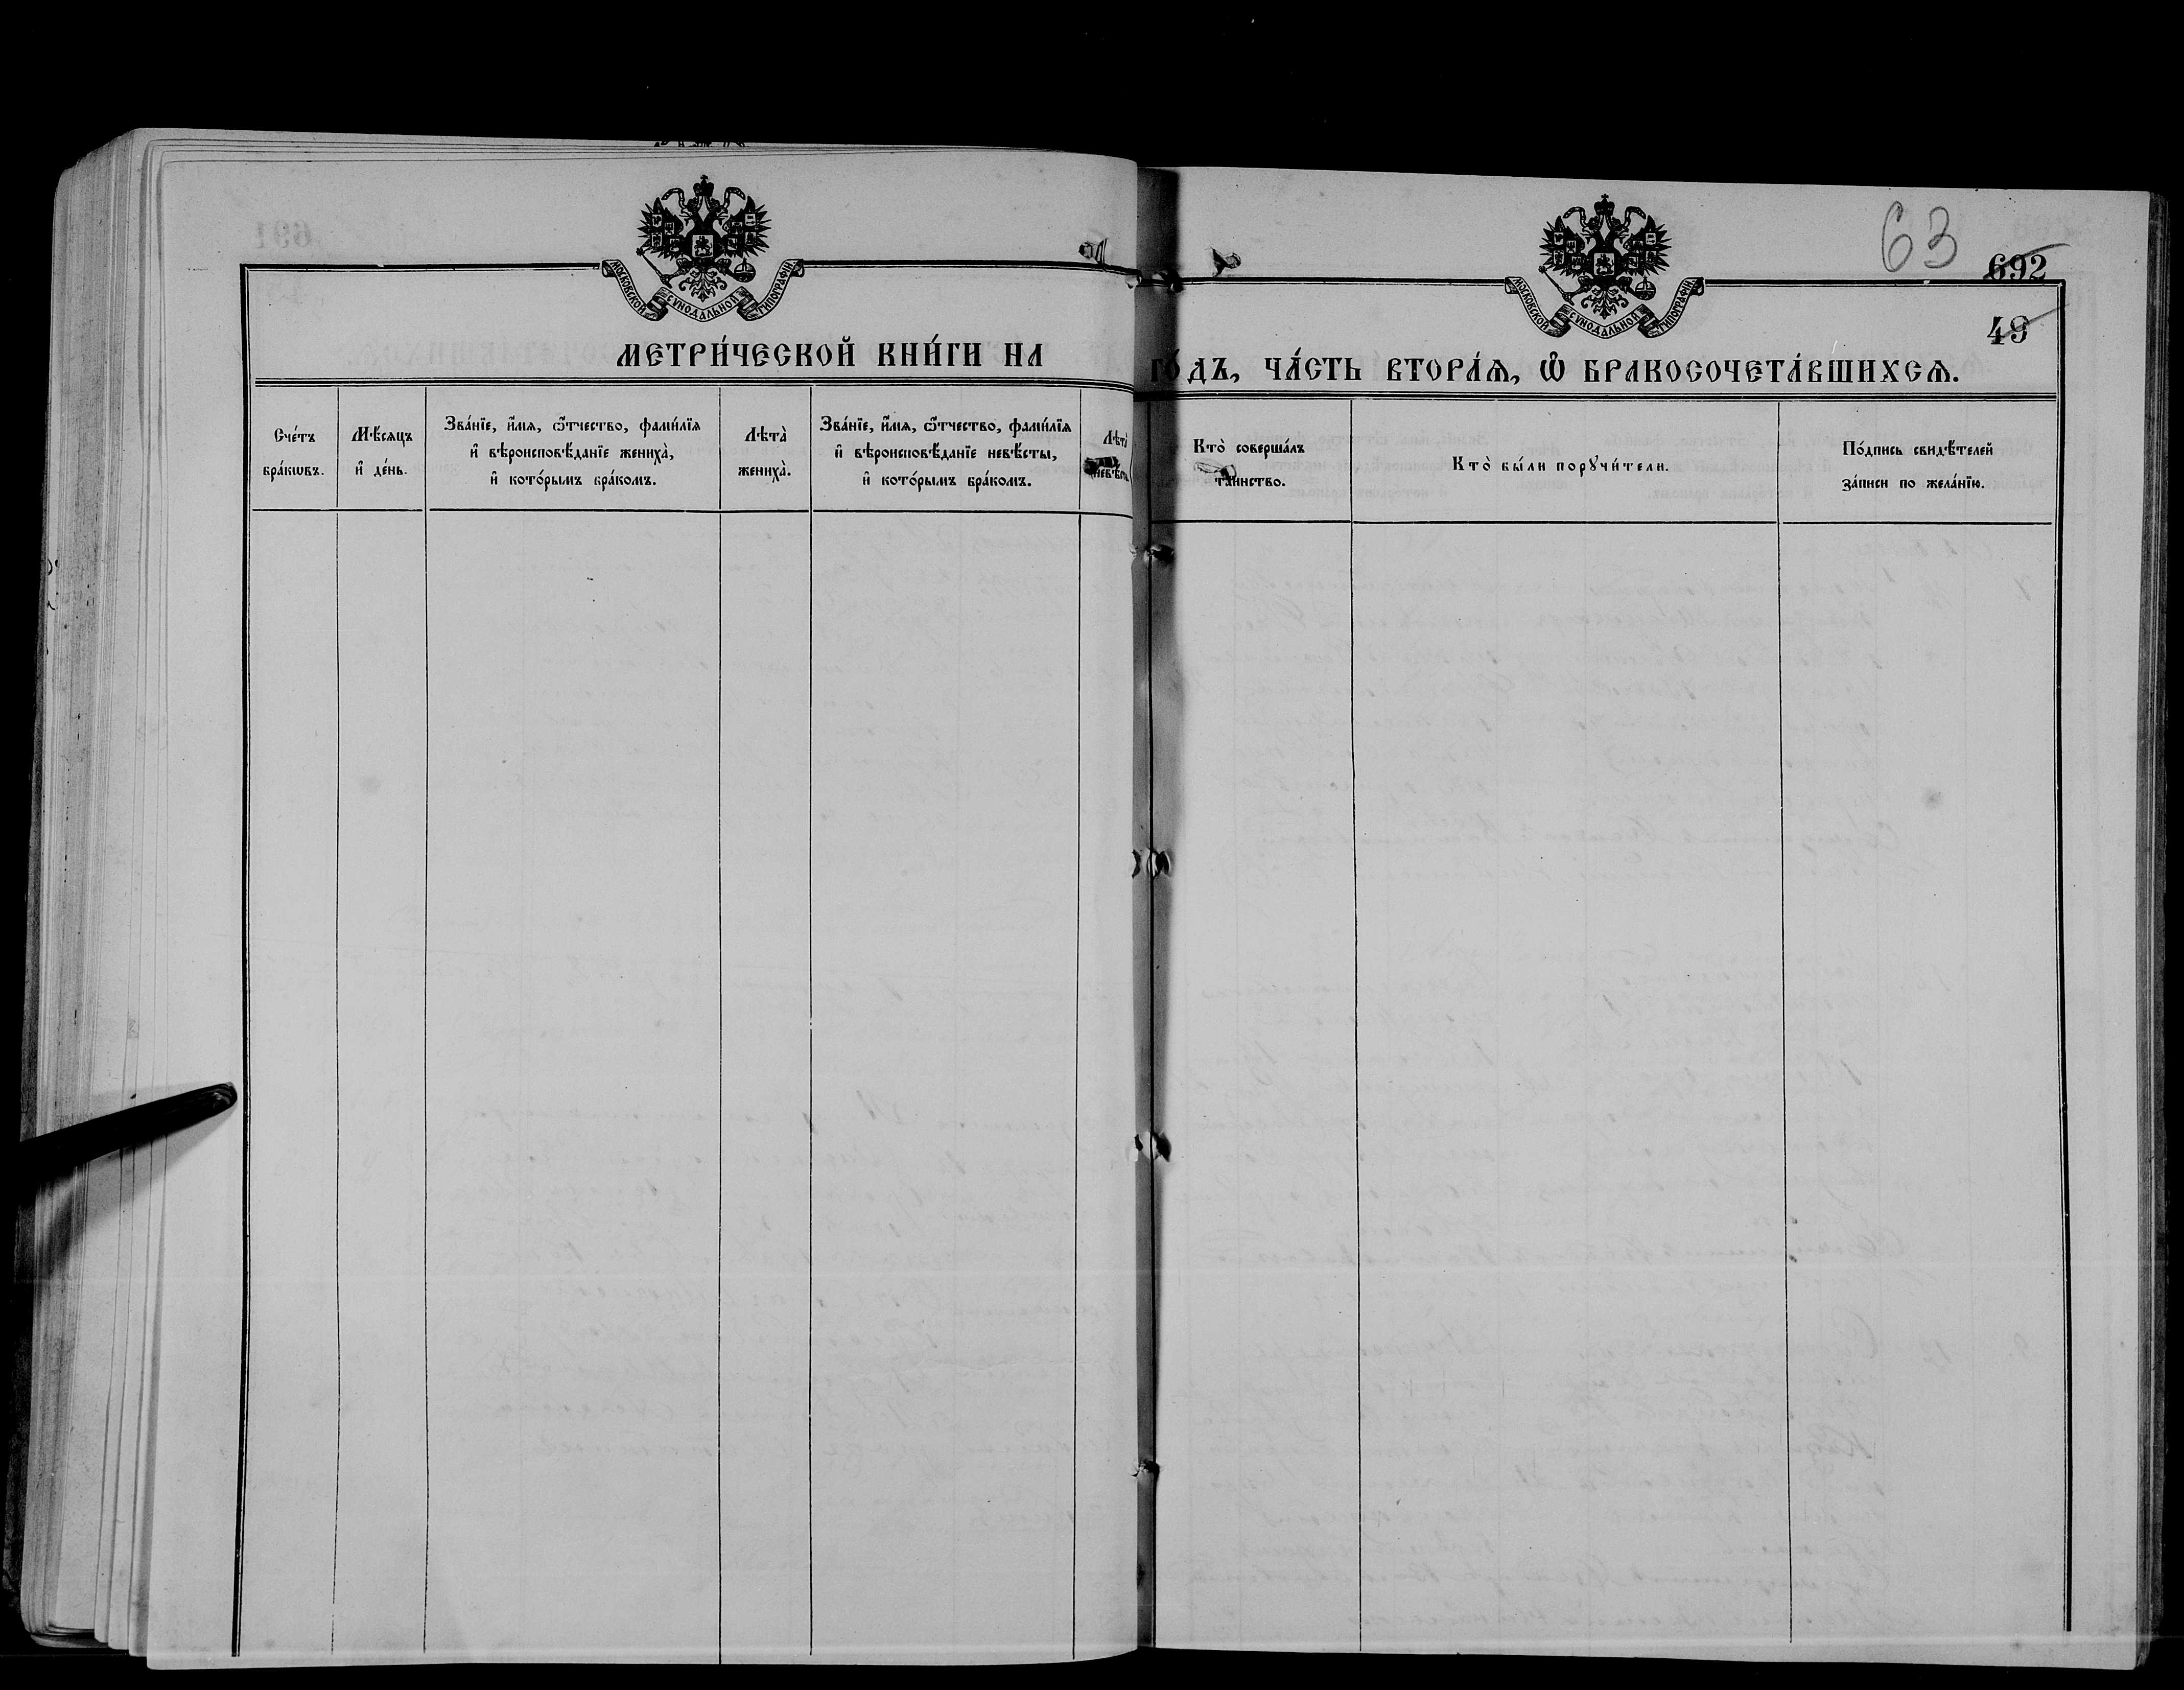 63
692
49
МОСКОВСКОЙ СѴНОДАЛЬНОЙ ТИПОГРАФІИ
МОСКОВСКОЙ СѴНОДАЛЬНОЙ ТИПОГРАФІИ
МЕТРИ́ЧЕСКОЙ КНИ́ГИ НА ГО́ДЪ, ЧА́СТЬ ВТОРА́Ѧ, Ѽ БРАКОСОЧЕТА́ВШИХСѦ.
Сче́тъ
бра́кѡвъ.
Мѣ́сѧцъ
и҆ де́нь.
Зва́нїе, и҆́мѧ, ѻ҆́тчество, фами́лїѧ
и҆ вѣроисповѣ́данїе жениха̀,
и҆ кото́рымъ бра́комъ.
Лѣта̀
жениха̀.
Зва́нїе, и҆́мѧ, ѻ҆́тчество, фами́лїѧ
и҆ вѣроисповѣ́данїе невѣ́сты,
и҆ кото́рымъ бра́комъ.
Лѣта̀
невѣ́сты
Кто̀ соверша́лъ
та́инство.
Кто̀ бы́ли порꙋчи́тели.
По́дпись свидѣ́телей
за́писи по жела́нїю.